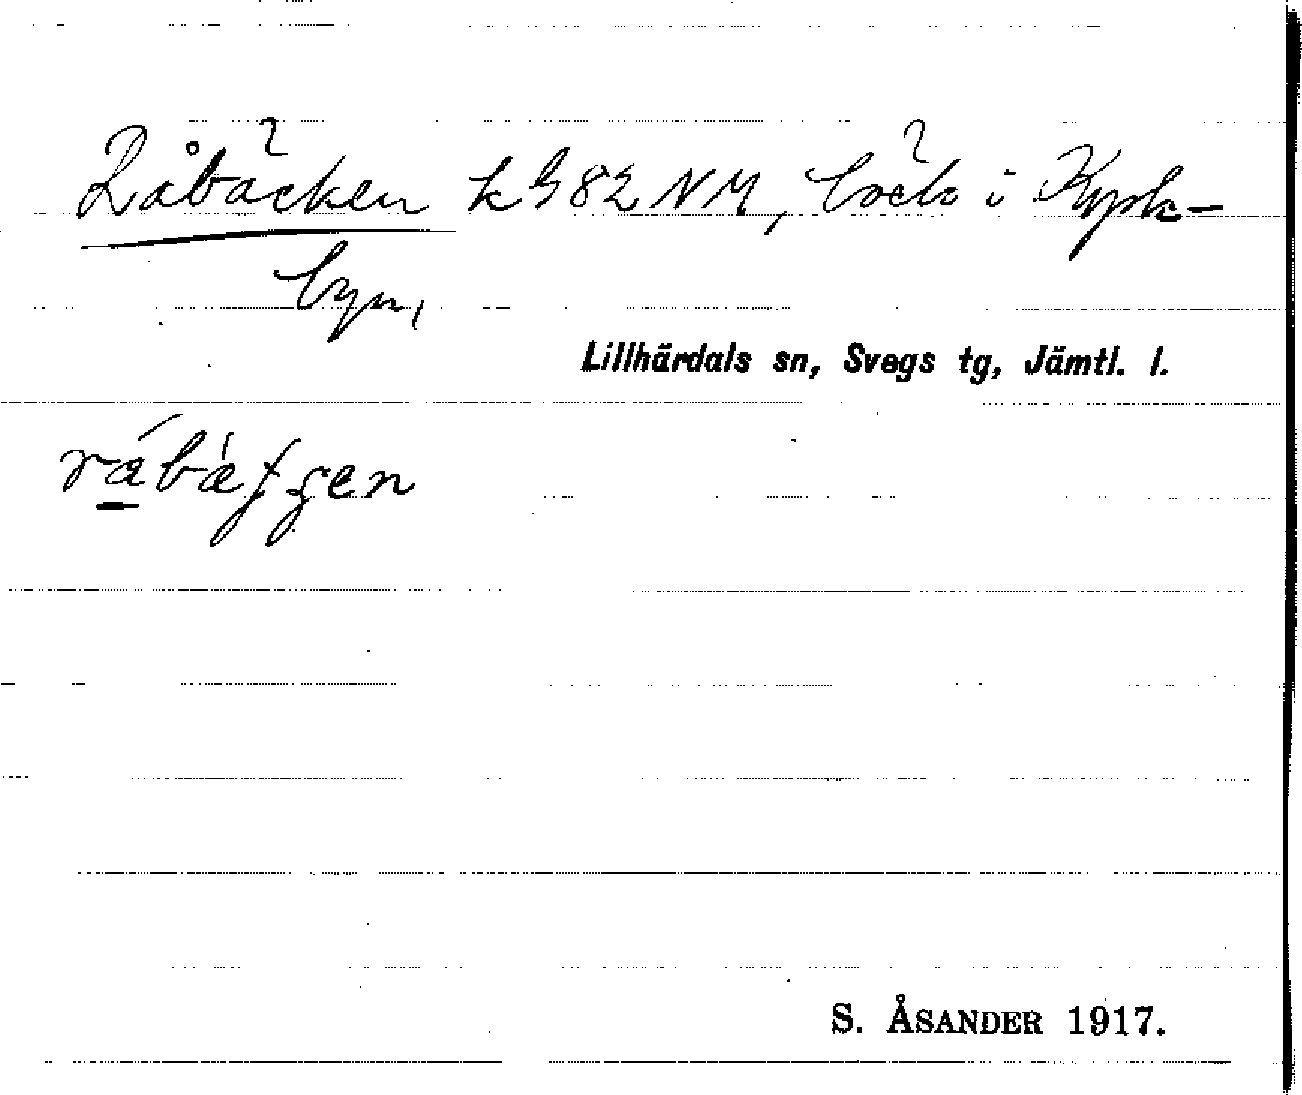 Råbäcken k G 82 NM, bäck i Kyrk-
byn,
Lillhärdals sn, Svegs tg, Jämtl. l.
S. ÅSANDER 1917.